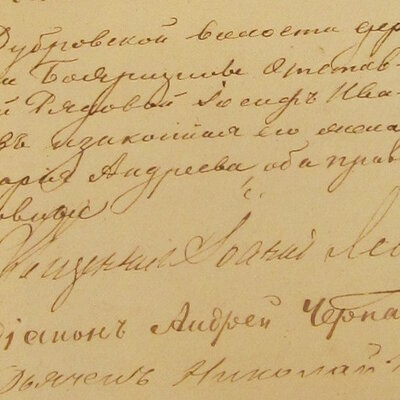 Дубровской волости дер
и Бояризновы Отстав
й Рядовой Іосифъ Ива
въ и законная его жена
арія Андреева, оба прав
славные
Священникъ Іоаннъ Ле
Діаконъ Андрей Черпа
Дьячекъ Николай